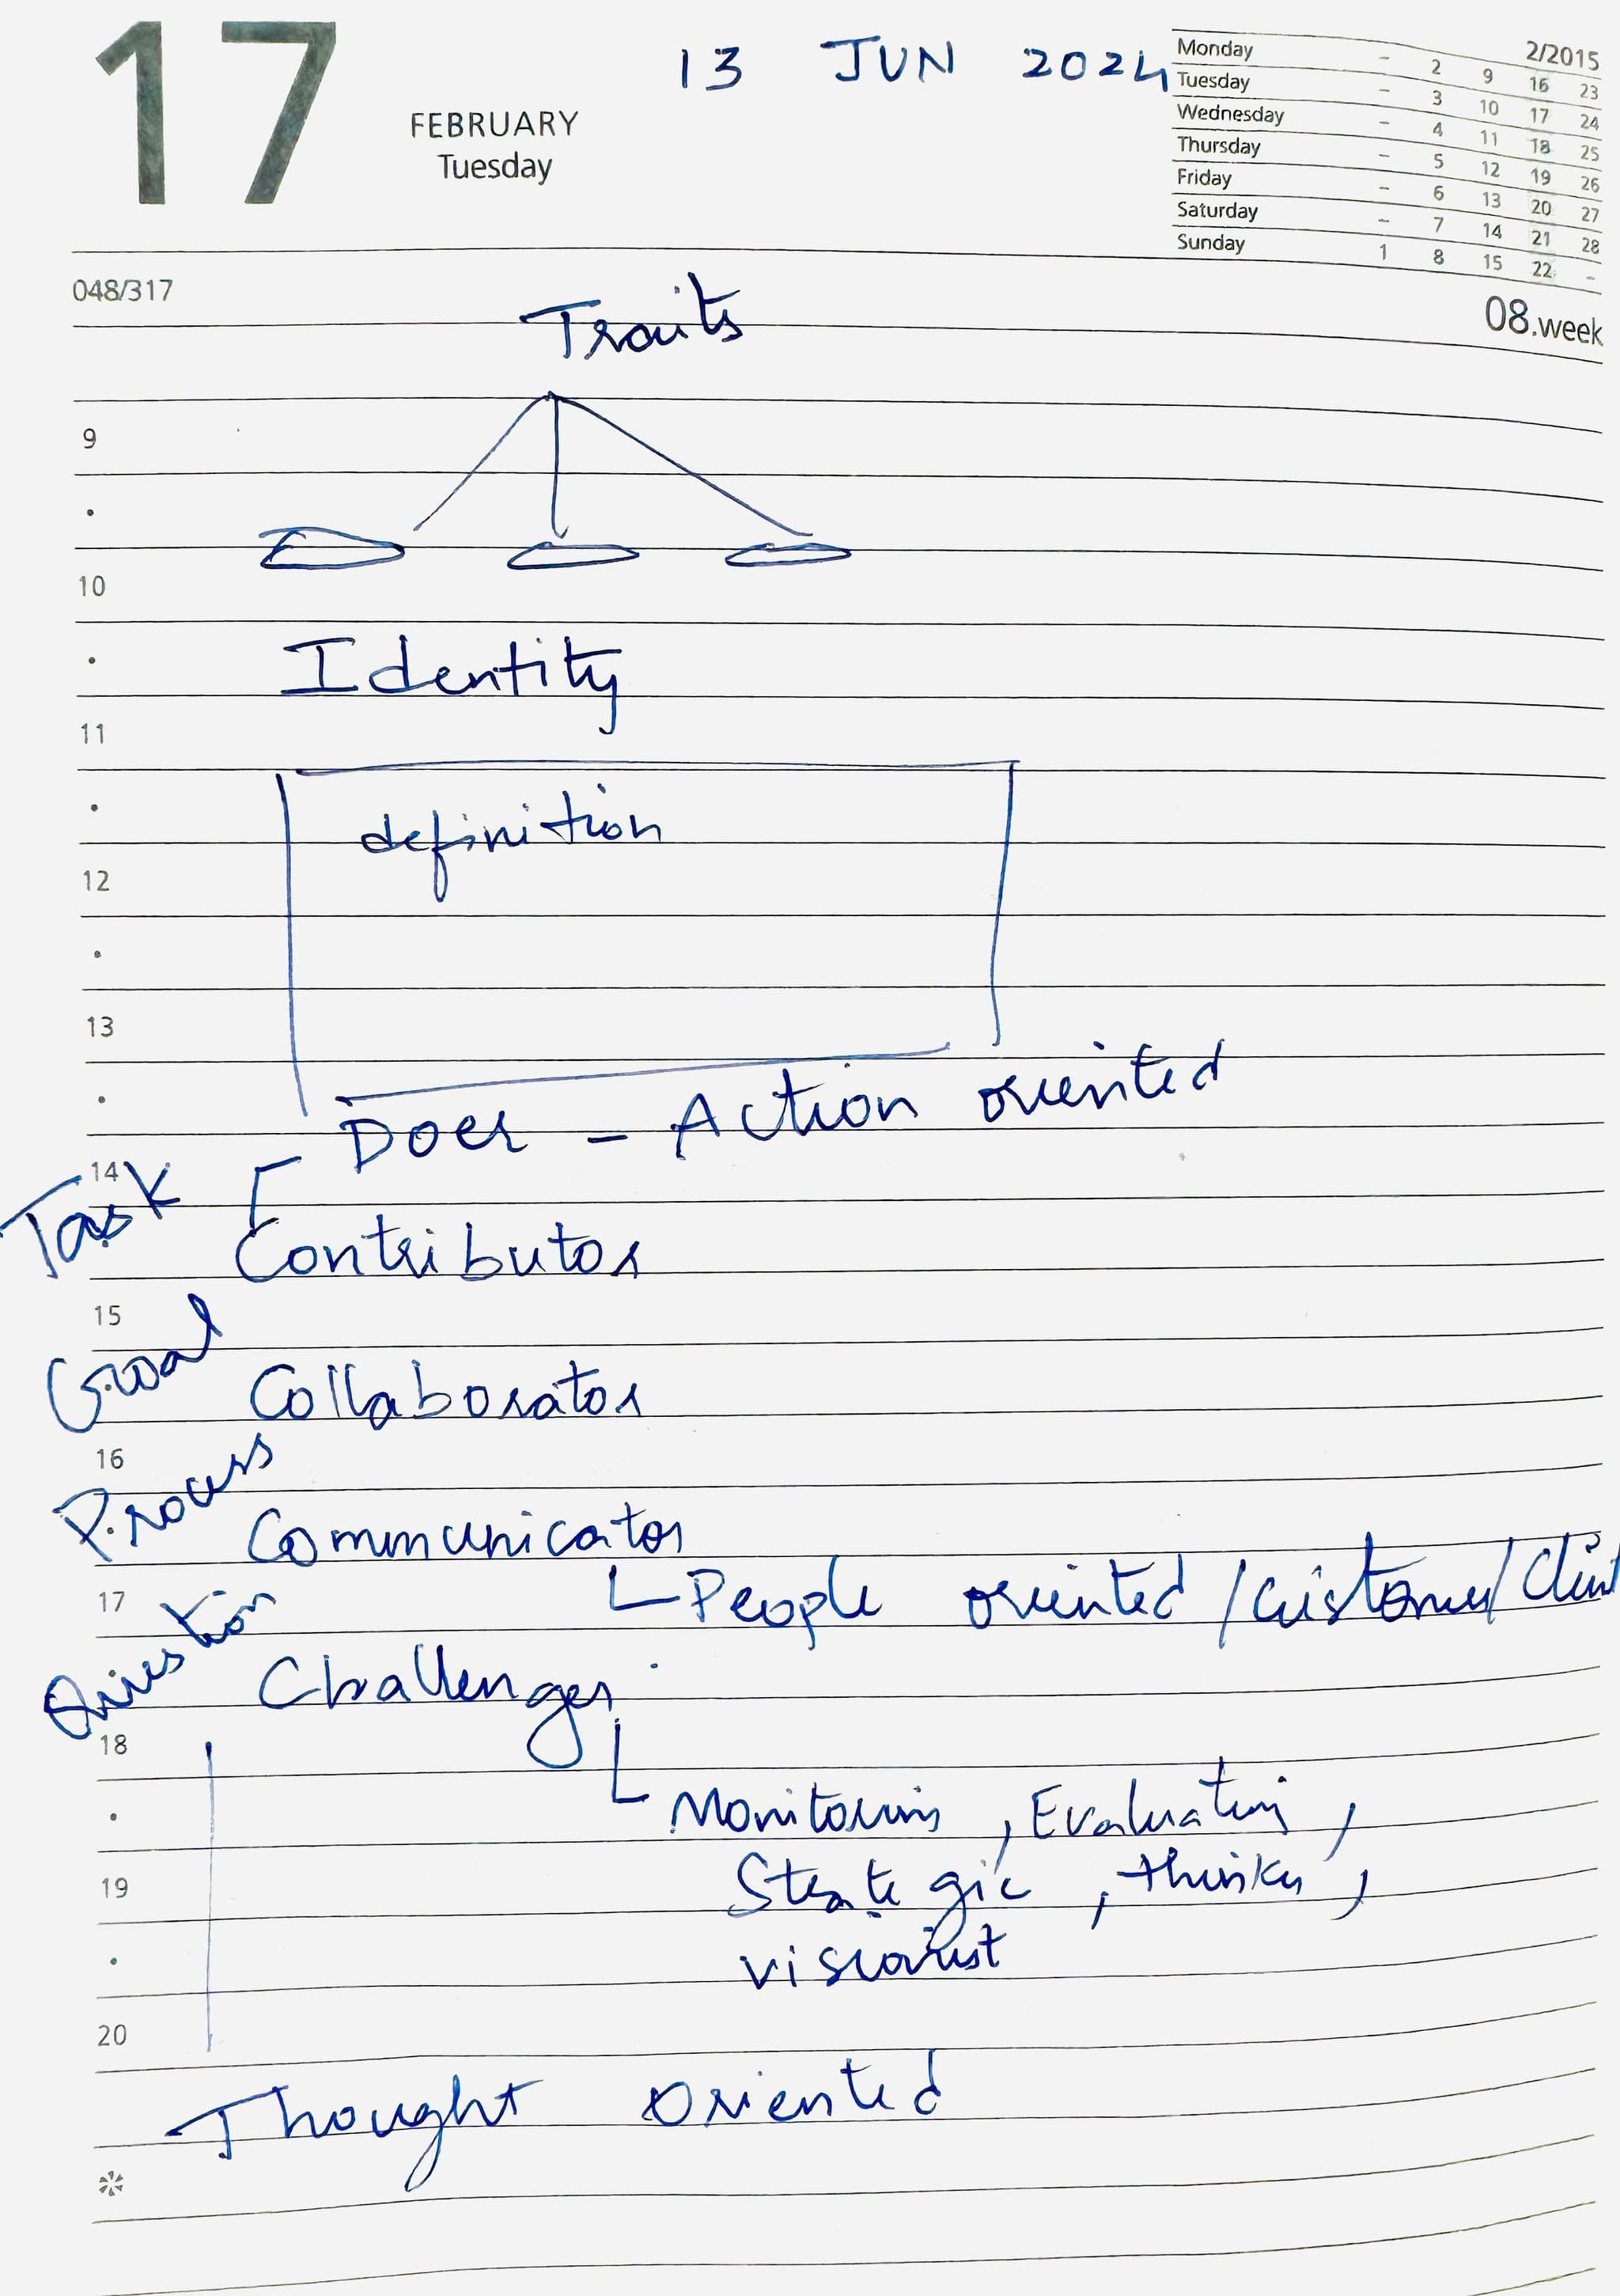 17
FEBRUARY
Tuesday
13 JUN 2024
2/2015
Monday - 2 9 16 23
Tuesday - 3 10 17 24
Wednesday - 4 11 18 25
Thursday - 5 12 19 26
Friday - 6 13 20 27
Saturday - 7 14 21 28
Sunday 1 8 15 22 -
048/317
08.week
Traits
9
10
Identity
11
definition
12
13
Doer - Action oriented
14
Task Contributor
15
Goal Collaborator
16
Process Communicator
17
People oriented / customer / Client
Question Challenger
18
Monitoring, Evaluating,
19
Strategic, thinker,
visionist
20
Thought Oriented